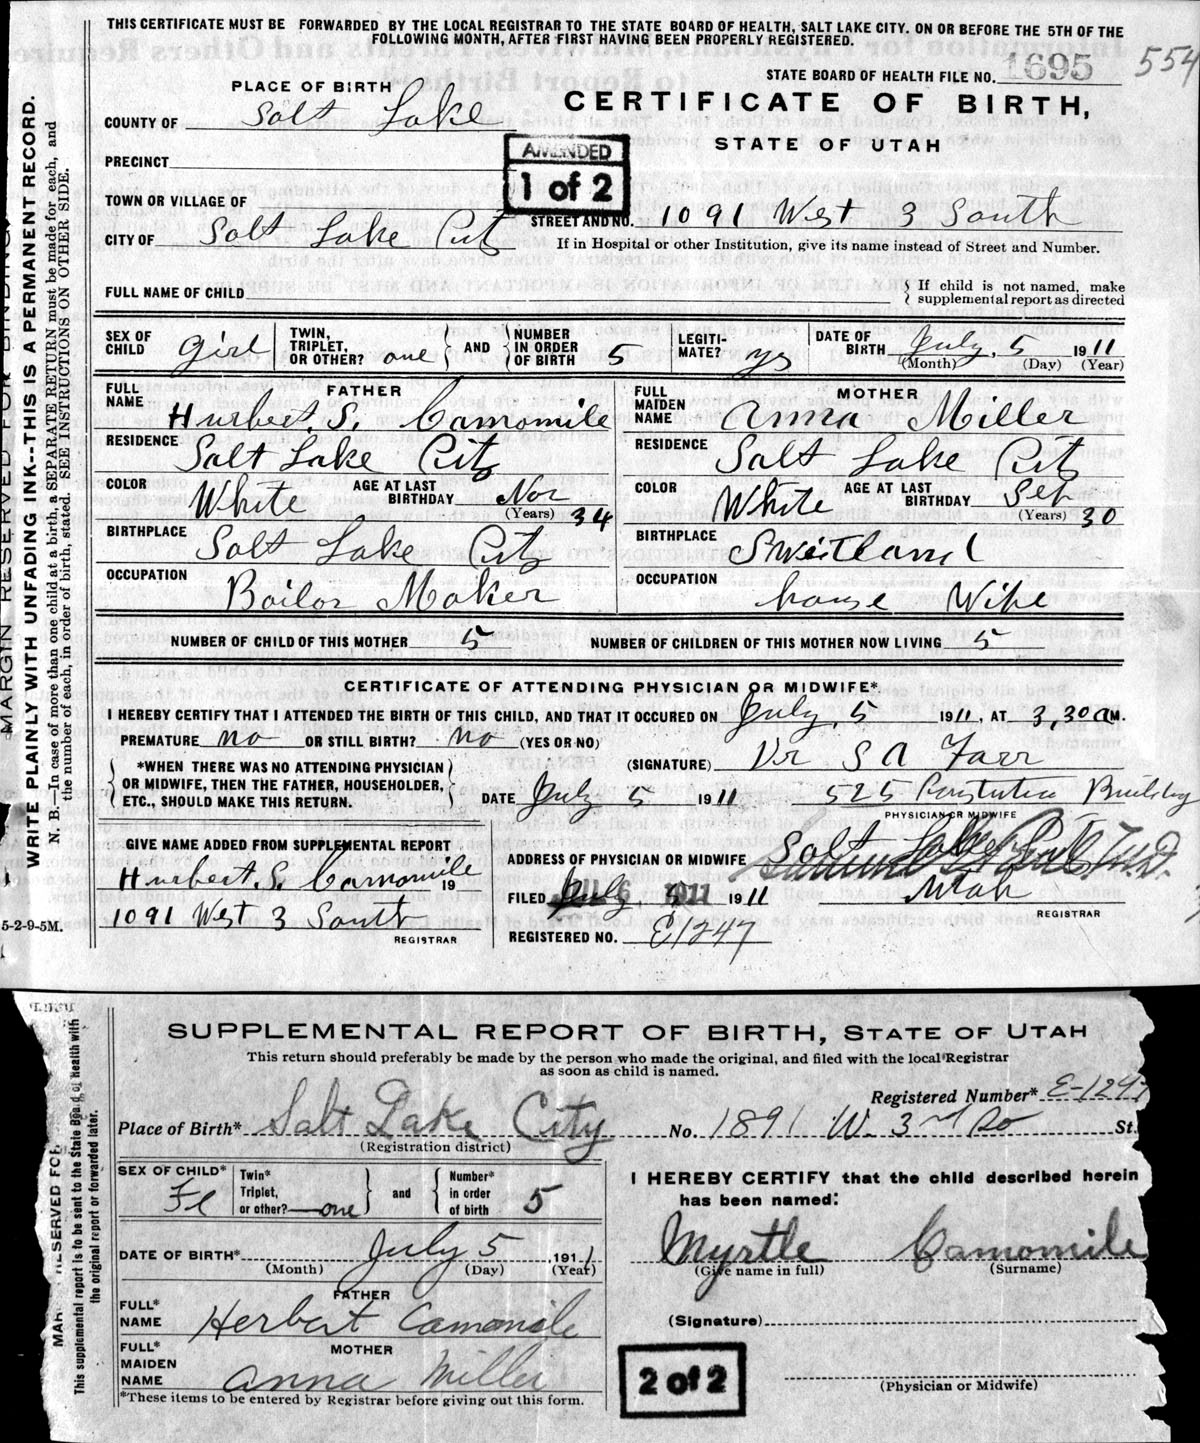 THIS CERTIFICATE MUST BE FORWARDED BY THE LOCAL REGISTRAR TO THE STATE BOARD OF HEALTH, SALT LAKE CITY. ON OR BEFORE THE 5TH OF THE
FOLLOWING MONTH, AFTER FIRST HAVING BEEN PROPERLY REGISTERED.
STATE BOARD OF HEALTH FILE NO. 1695 554
PLACE OF BIRTH
CERTIFICATE OF BIRTH,
COUNTY OF Salt Lake
STATE OF UTAH
AMENDED
1 of 2
PRECINCT
TOWN OR VILLAGE OF
STREET AND NO. 1091 West 3 South
CITY OF Salt Lake City
If in Hospital or other Institution, give its name instead of Street and Number.
FULL NAME OF CHILD
If child is not named, make
supplemental report as directed
SEX OF CHILD girl TWIN, TRIPLET, OR OTHER? one AND NUMBER IN ORDER OF BIRTH 5 LEGITIMATE? yes DATE OF BIRTH July, 5 1911
(Month) (Day) (Year)
FATHER
FULL NAME Hurbert. S. Camomile
RESIDENCE Salt Lake City
COLOR White AGE AT LAST BIRTHDAY Nov 34
(Years)
BIRTHPLACE Salt Lake City
OCCUPATION Boilor Maker
MOTHER
FULL MAIDEN NAME Anna Miller
RESIDENCE Salt Lake City
COLOR White AGE AT LAST BIRTHDAY Sep 30
(Years)
BIRTHPLACE Sweitland
OCCUPATION house Wife
NUMBER OF CHILD OF THIS MOTHER 5 NUMBER OF CHILDREN OF THIS MOTHER NOW LIVING 5
CERTIFICATE OF ATTENDING PHYSICIAN OR MIDWIFE*.
I HEREBY CERTIFY THAT I ATTENDED THE BIRTH OF THIS CHILD, AND THAT IT OCCURED ON July, 5 1911, AT 3,30 a M.
PREMATURE no OR STILL BIRTH? no (YES OR NO)
*WHEN THERE WAS NO ATTENDING PHYSICIAN
OR MIDWIFE, THEN THE FATHER, HOUSEHOLDER,
ETC., SHOULD MAKE THIS RETURN.
(SIGNATURE) Dr S A Farr
DATE July 5 1911 525 Building
PHYSICIAN OR MIDWIFE
GIVE NAME ADDED FROM SUPPLEMENTAL REPORT
Hurbert. S. Camomile 19
1091 West 3 South
REGISTRAR
ADDRESS OF PHYSICIAN OR MIDWIFE Salt Lake City
FILED July 1911 Utah
REGISTRAR
REGISTERED NO. E1247
MARGIN RESERVED FOR BINDING.
WRITE PLAINLY WITH UNFADING INK---THIS IS A PERMANENT RECORD.
N. B.—In case of more than one child at a birth, a SEPARATE RETURN must be made for each, and
the number of each, in order of birth, stated. SEE INSTRUCTIONS ON OTHER SIDE.
5-2-9-5M.
SUPPLEMENTAL REPORT OF BIRTH, STATE OF UTAH
This return should preferably be made by the person who made the original, and filed with the local Registrar
as soon as child is named.
Registered Number* E-1247
Place of Birth* Salt Lake City No. 1891 W. 3rd So St.
(Registration district)
SEX OF CHILD* Fe Twin* Triplet, or other? one and Number* in order of birth 5
DATE OF BIRTH* July 5 1911
(Month) (Day) (Year)
FATHER
FULL* NAME Herbert Camomile
MOTHER
FULL* MAIDEN NAME Anna Miller
*These items to be entered by Registrar before giving out this form.
I HEREBY CERTIFY that the child described herein
has been named:
Myrtle Camomile
(Give name in full) (Surname)
(Signature)
(Physician or Midwife)
2 of 2
This supplemental report is to be sent to the State Board of Health with
the original report or forwarded later.